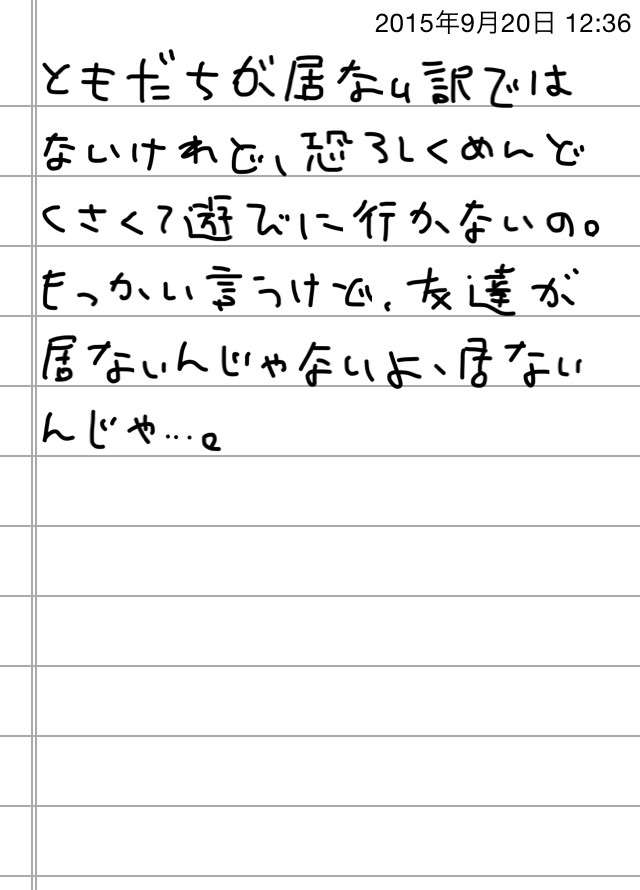 2015年9月20日 12:36
ともだちが居ない訳では
ないけれど、恐ろしくめんど
くさくて遊びに行かないの。
もっかい言うけど、友達が
居ないんじゃないよ、居ない
んじゃ…。